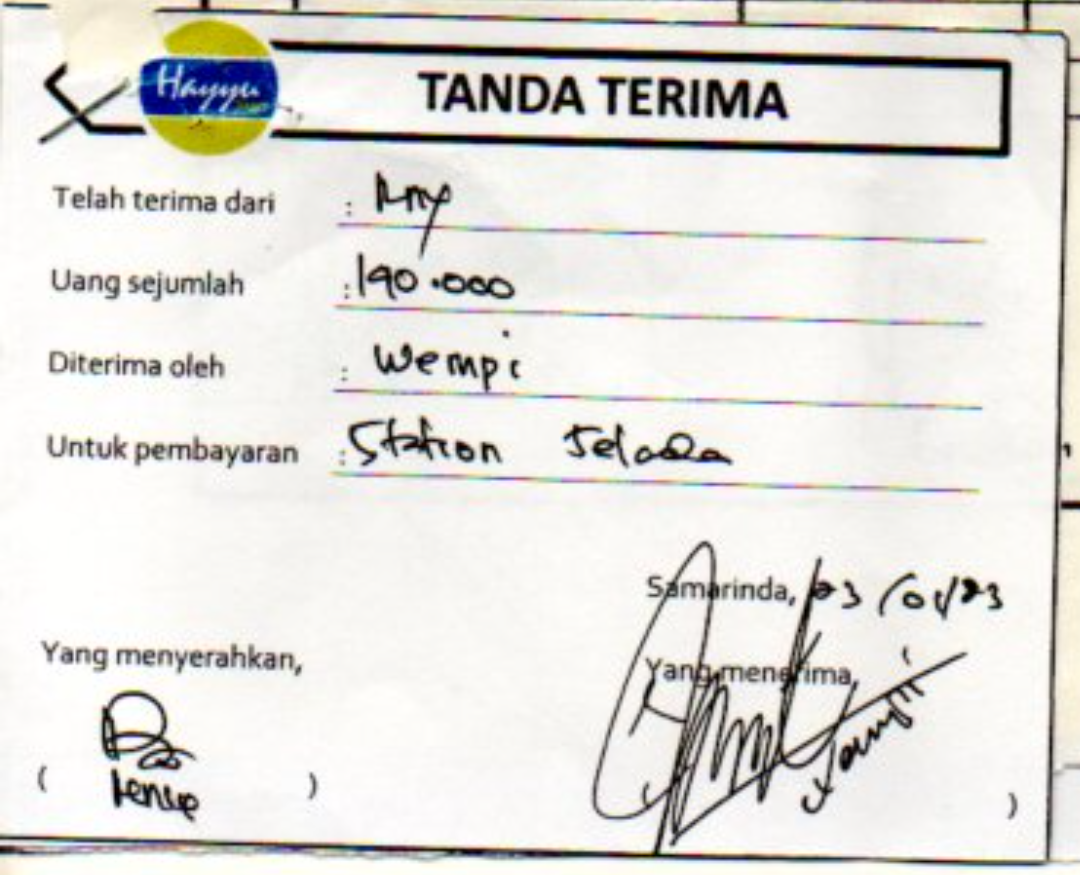 Hayyu
TANDA TERIMA
Telah terima dari :
Uang sejumlah : 190.000
Diterima oleh : Wempi
Untuk pembayaran : Station
Samarinda, 23/01/23
Yang menyerahkan,
Yang menerima,
( )
)